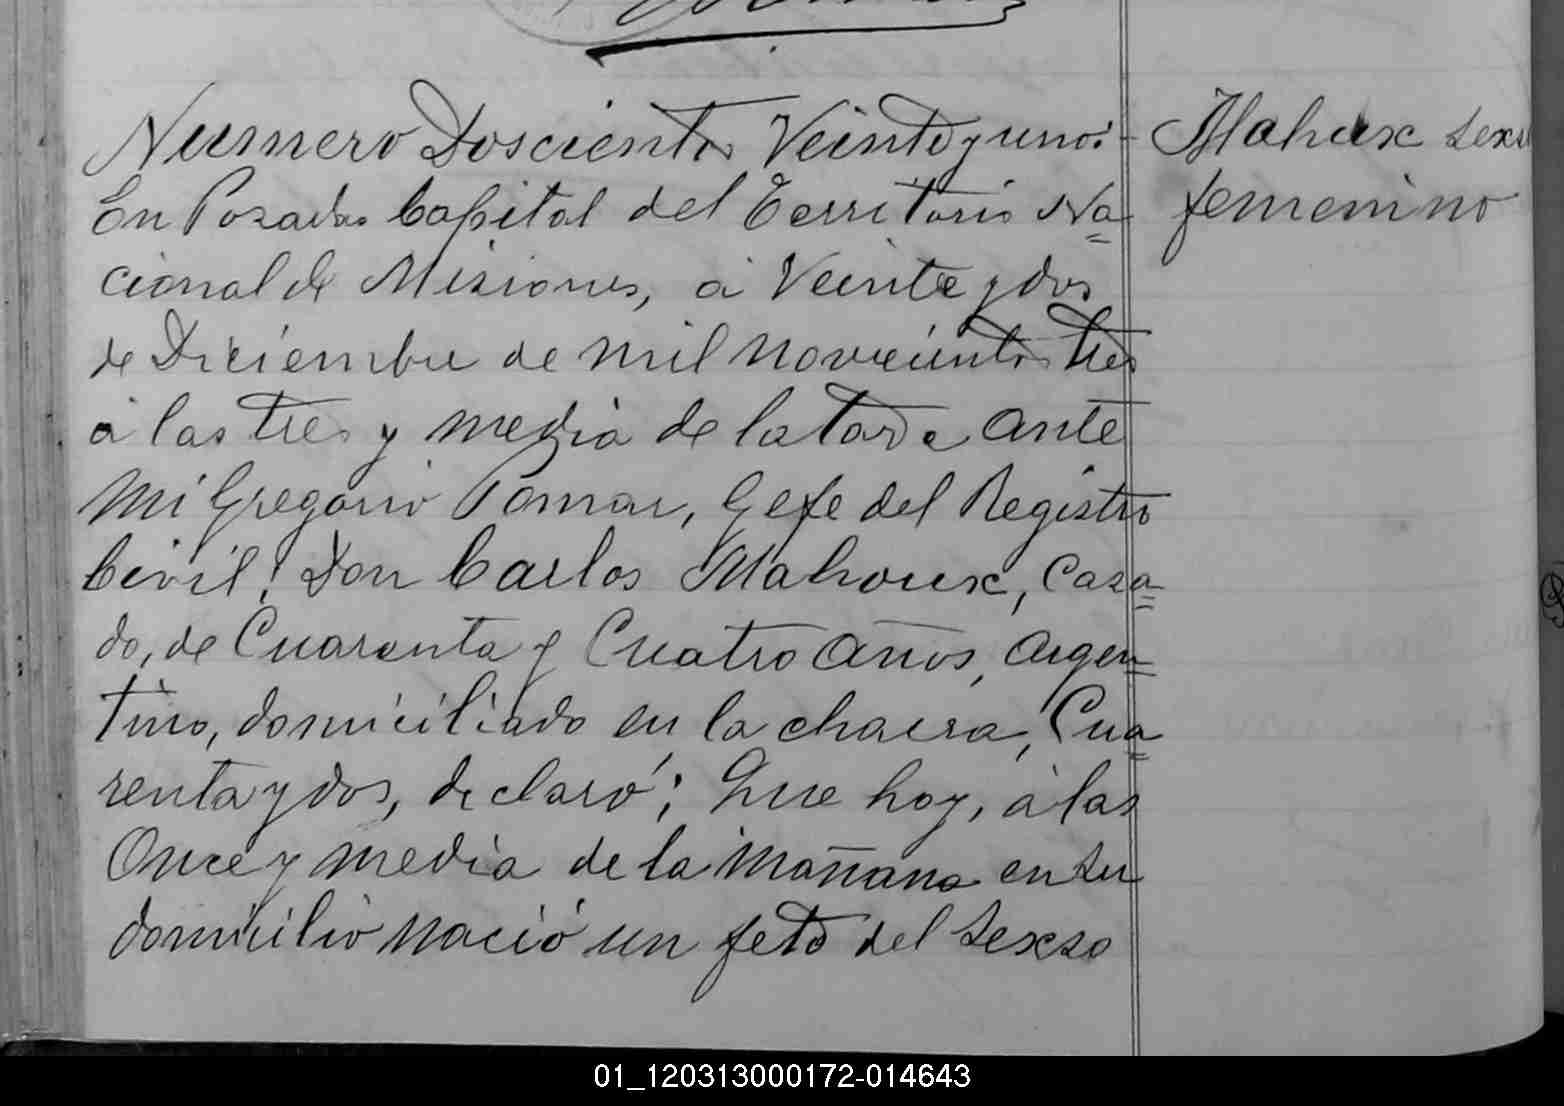 Numero Doscientos Veinte y uno:-
En Posadas Capital del Territorio Na=
cional de Misiones, á Veinte y dos
de Diciembre de mil novecientos tres
á las tres y media de la tarde ante
mi Gregorio Pomar, Gefe del Registro
Civil; Don Carlos Mahoux, Casa=
do, de Cuarenta y Cuatro años, argen=
tino, domiciliado en la chacra, Cua=
renta y dos, declaró; Que hoy, á las
Once y media de la Mañana en su
domicilio nació un feto del sexso
Mahux sexo
femenino
01_120313000172-014643